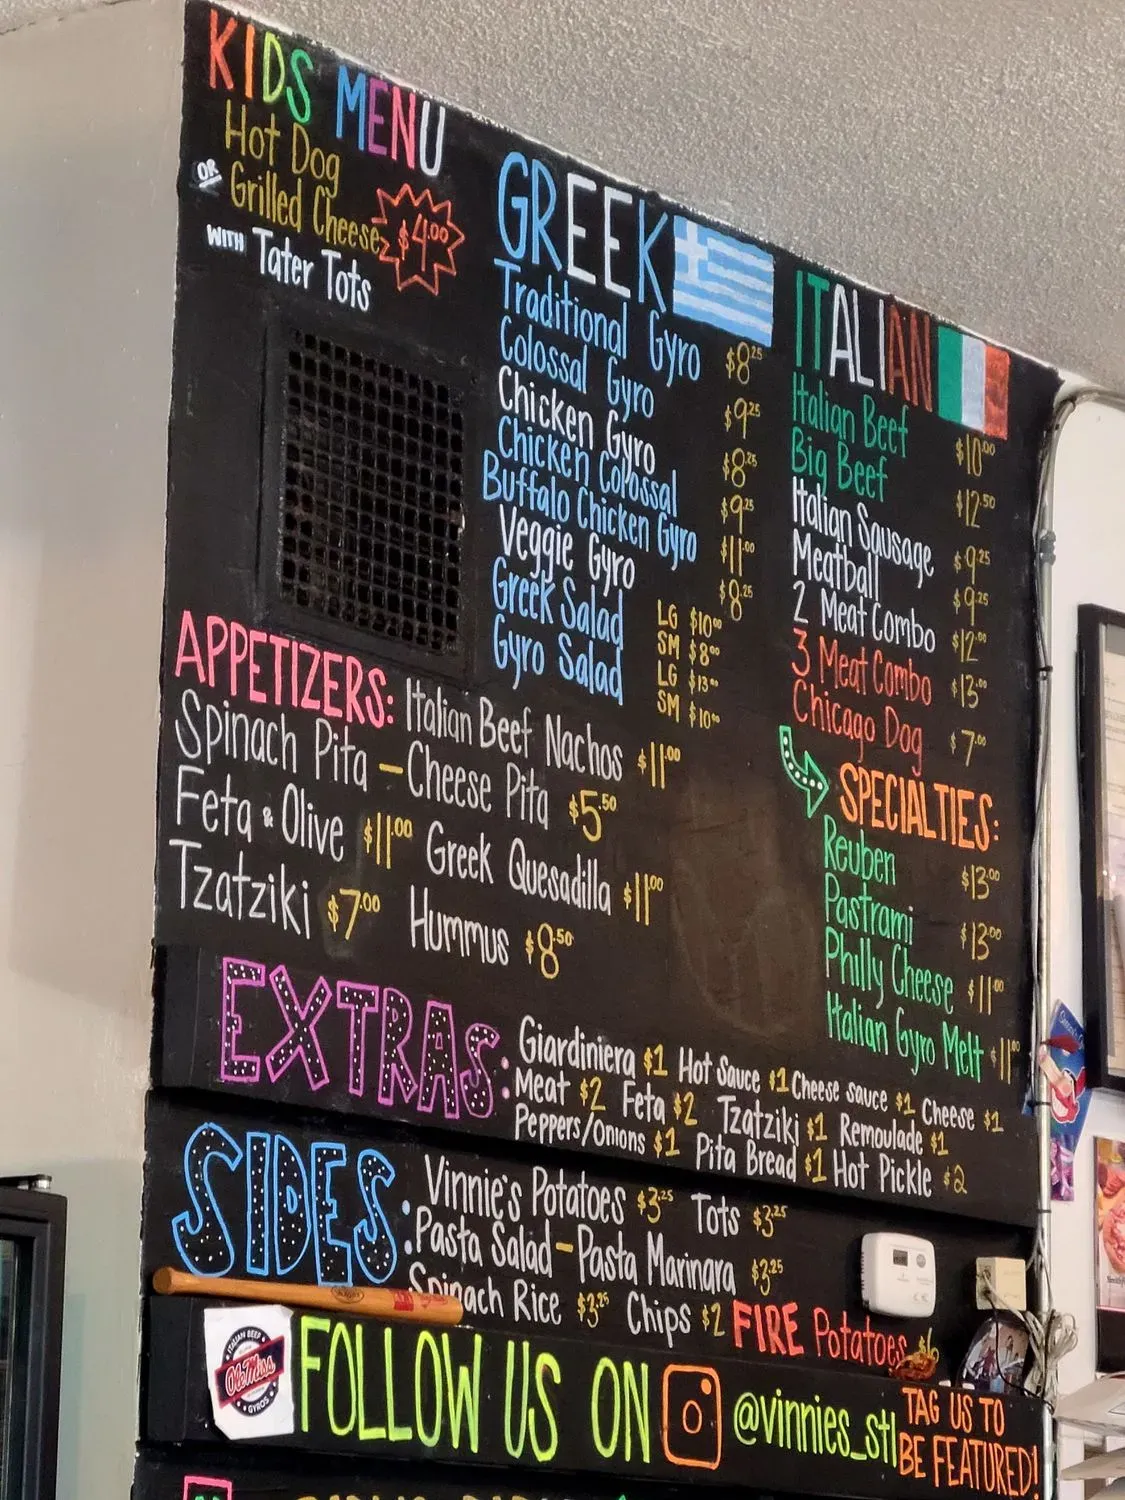 KIDS MENU
Hot Dog
OR Grilled Cheese $4.00
WITH Tater Tots
GREEK
Traditional Gyro $8.25
Colossal Gyro $9.25
Chicken Gyro $8.25
Chicken Colossal $9.25
Buffalo Chicken Gyro $11.00
Veggie Gyro $8.25
Greek Salad LG $10.00
SM $8.00
Gyro Salad LG $13.00
SM $10.00
ITALIAN
Italian Beef $10.00
Big Beef $12.50
Italian Sausage $9.25
Meatball $9.25
2 Meat Combo $12.00
3 Meat Combo $13.00
Chicago Dog $7.00
SPECIALTIES:
Reuben $13.00
Pastrami $13.00
Philly Cheese $11.00
Italian Gyro Melt $11.00
APPETIZERS: Italian Beef Nachos $11.00
Spinach Pita - Cheese Pita $5.50
Feta & Olive $11.00 Greek Quesadilla $11.00
Tzatziki $7.00 Hummus $8.50
EXTRAS: Giardiniera $1 Hot Sauce $1 Cheese sauce $1 Cheese $1
Meat $2 Feta $2 Tzatziki $1 Remoulade $1
Peppers/Onions $1 Pita Bread $1 Hot Pickle $2
SIDES: Vinnie's Potatoes $3.25 Tots $3.25
Pasta Salad - Pasta Marinara $3.25
Spinach Rice $3.25 Chips $2 FIRE Potatoes $6
ITALIAN BEEF
Ole Miss
GYROS
FOLLOW US ON @vinnies_stl
TAG US TO
BE FEATURED!